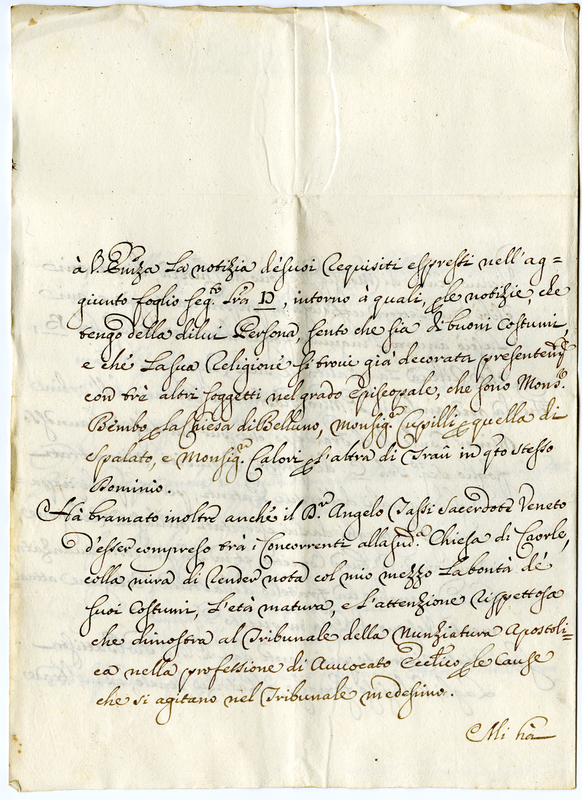 à V. Em̃za la notizia de' suoi Requisiti espressi nell'ag=
giunto foglio seg.to l'ra D, intorno à quali, p le notizie, che
tengo della dilui Persona, sento che sia di buoni Costumi,
e che la sua Religione si trovi già decorata presentem.te
con trè altri soggetti nel grado Episcopale, che sono Mons.r
Bembo p la Chiesa di Belluno, Monsig.r Cupilli p quella di
Spalato, e Monsig.r Calori p l'altra di Traù in q'to stesso
Dominio.
Hà bramato inoltre anche il D.r Angelo Tassi Sacerdote Veneto
d'esser compreso trà i Concorrenti alla sud.a Chiesa di Caorle,
colla mira di render nota col mio mezzo la bontà de'
suoi Costumi, l'età matura, e l'attenzione rispettosa
che dimostra al Tribunale della Nunziatura Apostoli=
ca nella professione di Avvocato Eccl'ico p le Cause
che si agitano nel Tribunale medesimo.
Mi hà